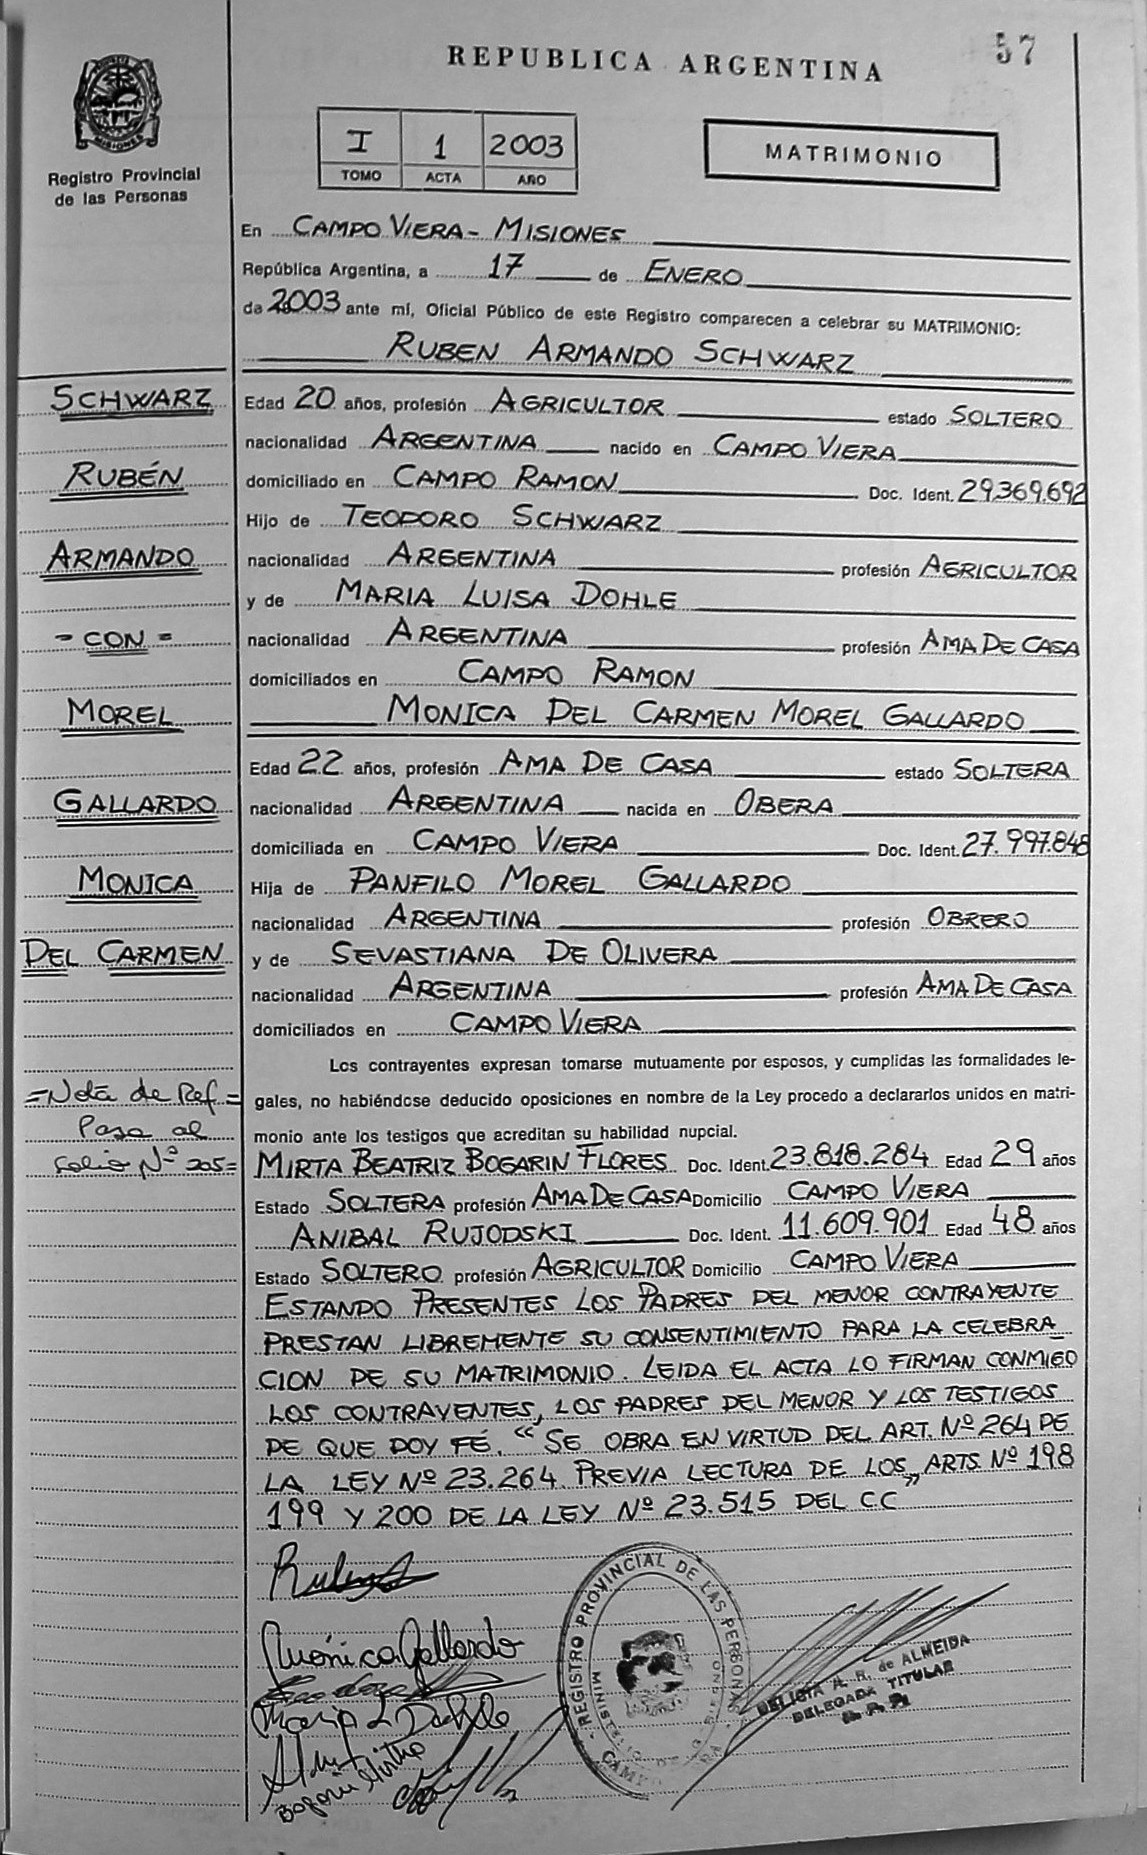 57
REPUBLICA ARGENTINA
MISIONES
Registro Provincial
de las Personas
I 1 2003
TOMO ACTA AÑO
MATRIMONIO
En CAMPO VIERA - MISIONES
República Argentina, a 17 de ENERO
de 2003 ante mí, Oficial Público de este Registro comparecen a celebrar su MATRIMONIO:
RUBEN ARMANDO SCHWARZ
SCHWARZ
RUBÉN
ARMANDO
= CON =
MOREL
GALLARDO
MONICA
DEL CARMEN
=Nota de Ref=
Pasa al
Folio Nº 205=
Edad 20 años, profesión AGRICULTOR estado SOLTERO
nacionalidad ARGENTINA nacido en CAMPO VIERA
domiciliado en CAMPO RAMON Doc. Ident. 29.369.692
Hijo de TEODORO SCHWARZ
nacionalidad ARGENTINA profesión AGRICULTOR
y de MARIA LUISA DOHLE
nacionalidad ARGENTINA profesión AMA DE CASA
domiciliados en CAMPO RAMON
MONICA DEL CARMEN MOREL GALLARDO
Edad 22 años, profesión AMA DE CASA estado SOLTERA
nacionalidad ARGENTINA nacida en OBERA
domiciliada en CAMPO VIERA Doc. Ident. 27.997.848
Hija de PANFILO MOREL GALLARDO
nacionalidad ARGENTINA profesión OBRERO
y de SEVASTIANA DE OLIVERA
nacionalidad ARGENTINA profesión AMA DE CASA
domiciliados en CAMPO VIERA
Los contrayentes expresan tomarse mutuamente por esposos, y cumplidas las formalidades le-
gales, no habiéndose deducido oposiciones en nombre de la Ley procedo a declararlos unidos en matri-
monio ante los testigos que acreditan su habilidad nupcial.
MIRTA BEATRIZ BOGARIN FLORES Doc. Ident. 23.818.284 Edad 29 años
Estado SOLTERA profesión AMA DE CASA Domicilio CAMPO VIERA
ANIBAL RUJODSKI Doc. Ident. 11.609.901 Edad 48 años
Estado SOLTERO profesión AGRICULTOR Domicilio CAMPO VIERA
ESTANDO PRESENTES LOS PADRES DEL MENOR CONTRAYENTE
PRESTAN LIBREMENTE SU CONSENTIMIENTO PARA LA CELEBRA
CION DE SU MATRIMONIO. LEIDA EL ACTA LO FIRMAN CONMIGO
LOS CONTRAYENTES, LOS PADRES DEL MENOR Y LOS TESTIGOS
DE QUE DOY FÉ. "SE OBRA EN VIRTUD DEL ART. Nº 264 DE
LA LEY Nº 23.264. PREVIA LECTURA DE LOS ARTS. Nº 198
199 Y 200 DE LA LEY Nº 23.515 DEL C.C"
Ruben
Mónica Gallardo
Maria L Dohle
Bogarin Mirtha
REGISTRO PROVINCIAL DE LAS PERSONAS
MINISTERIO DE GOBIERNO
CAMPO VIERA
DELICIA A. R. de ALMEIDA
DELEGADA TITULAR